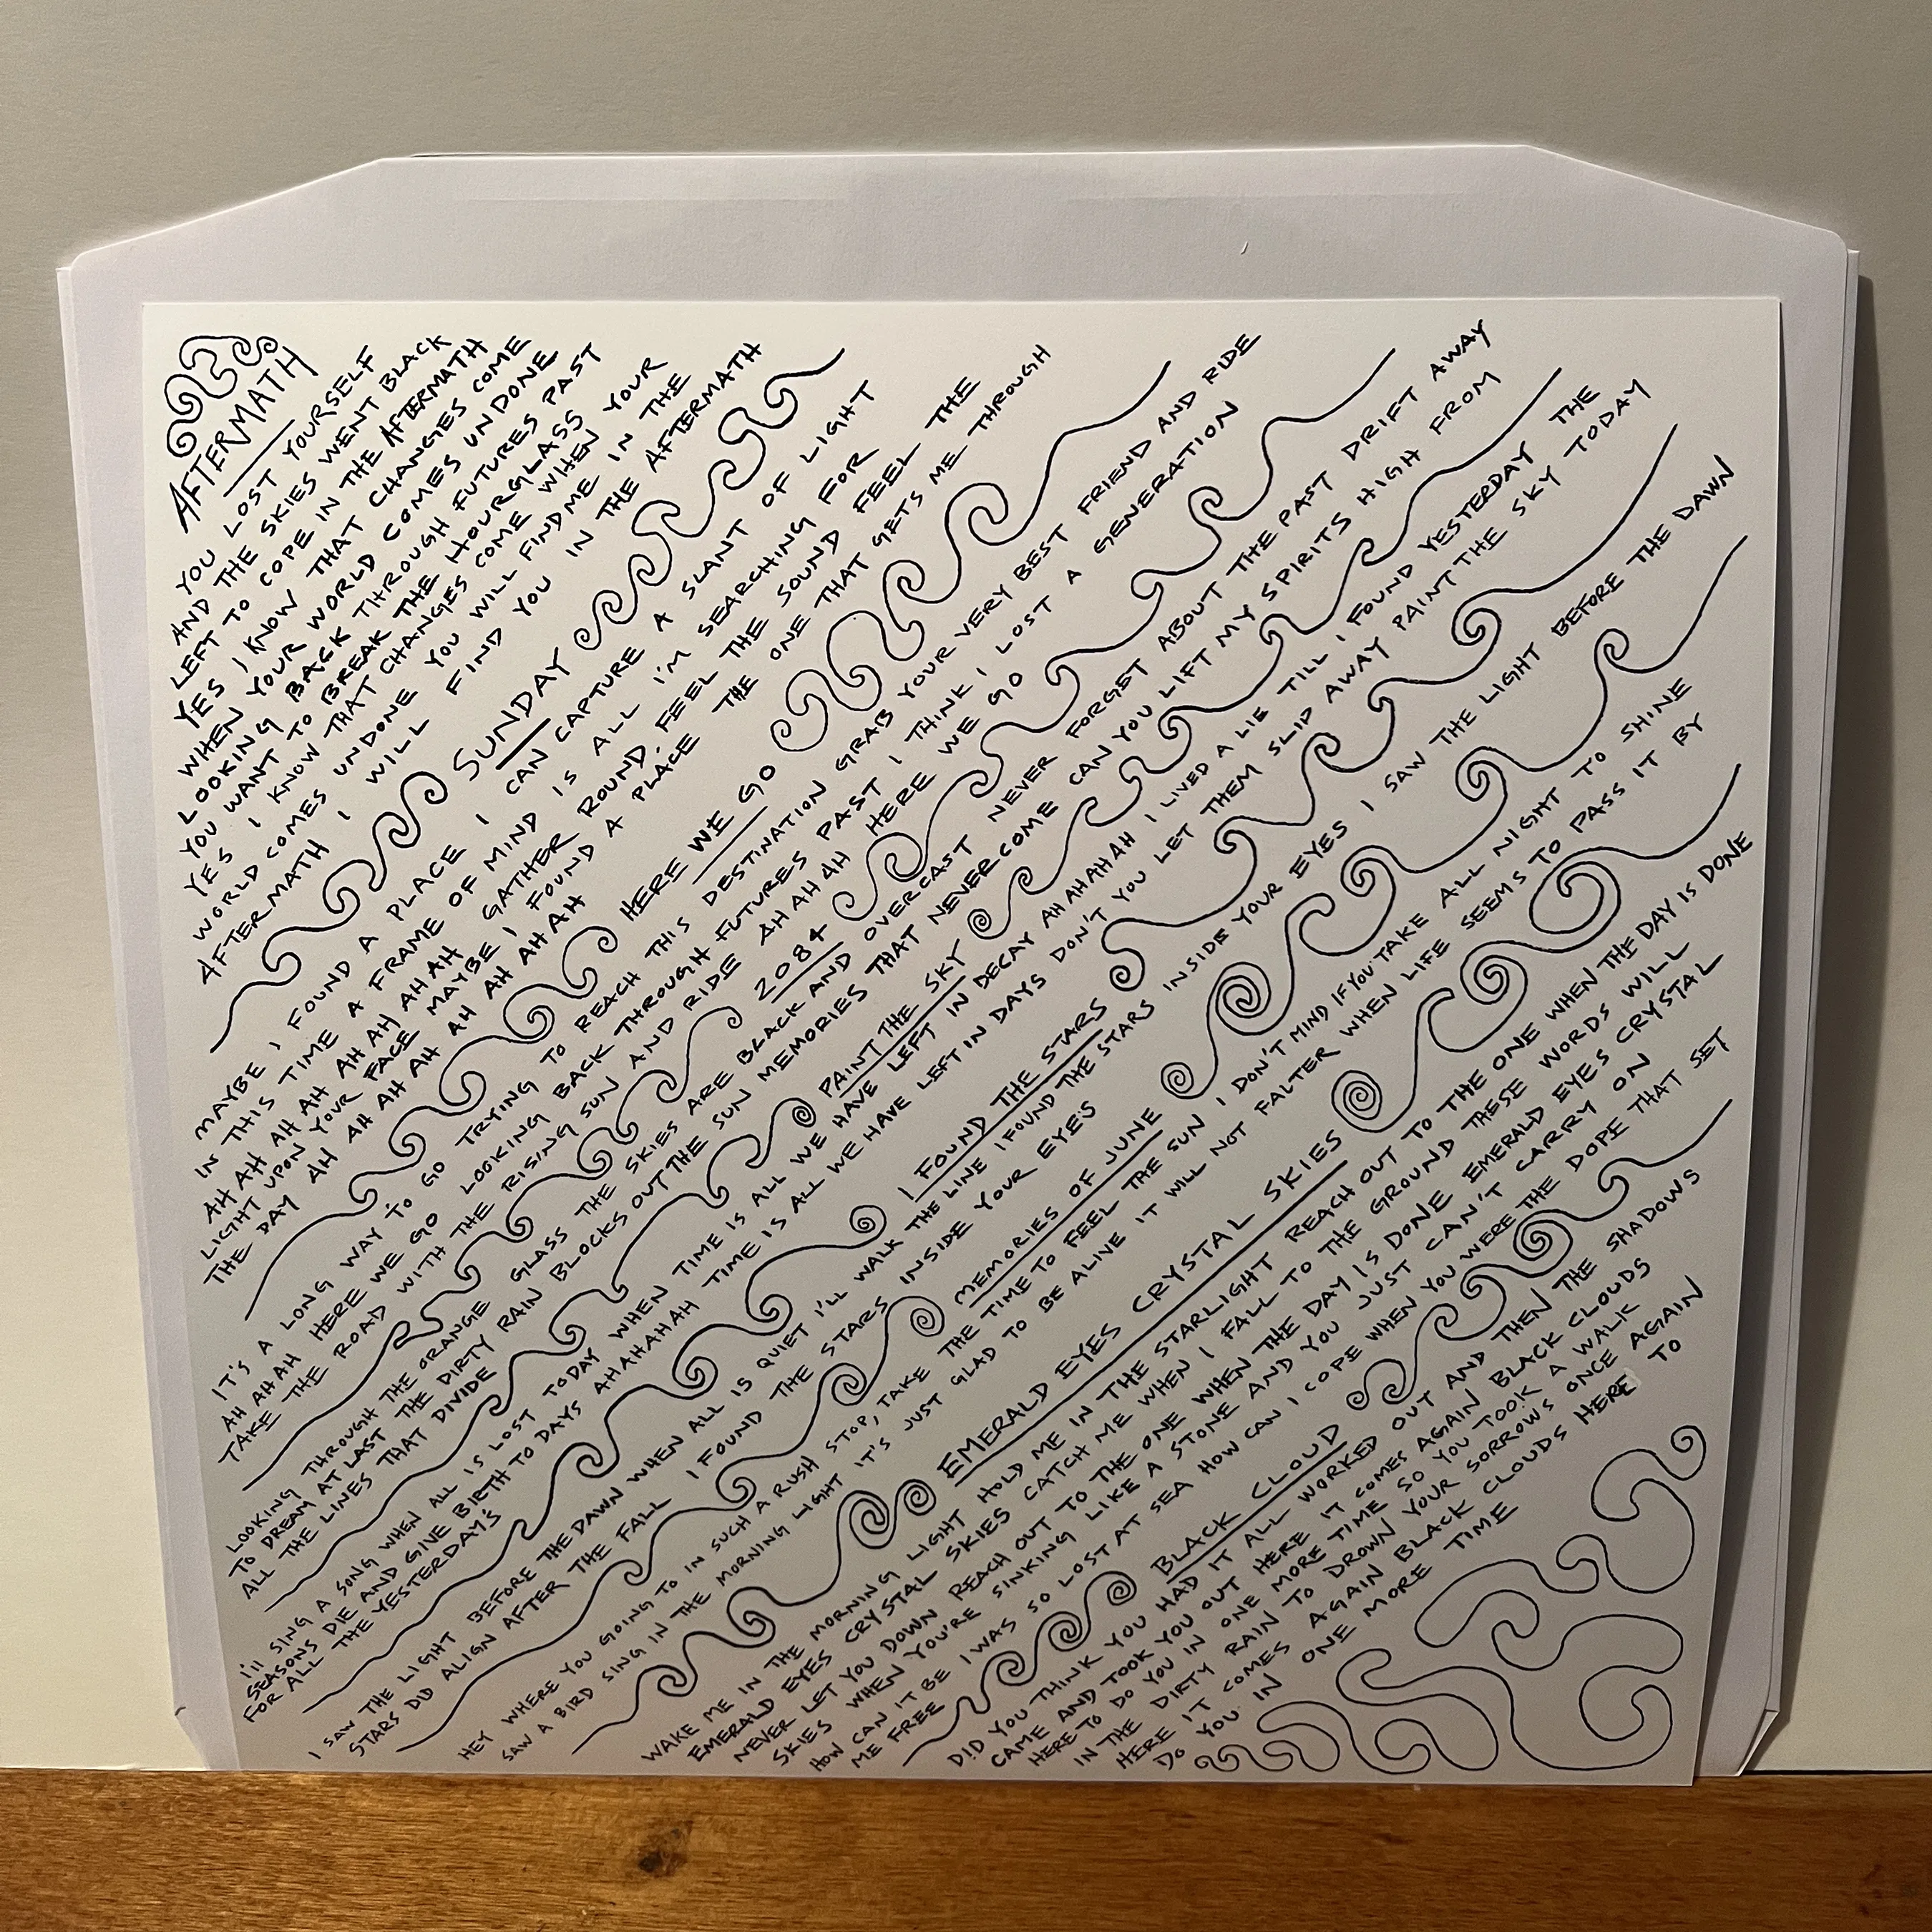 AFTERMATH
YOU LOST YOURSELF
AND THE SKIES WENT BLACK
LEFT TO COPE IN THE AFTERMATH
YES I KNOW THAT CHANGES COME
WHEN YOUR WORLD COMES UNDONE
LOOKING BACK THROUGH FUTURES PAST
YOU WANT TO BREAK THE HOURGLASS
YES I KNOW THAT CHANGES COME WHEN YOUR
WORLD COMES UNDONE YOU WILL FIND ME IN THE
AFTERMATH I WILL FIND YOU IN THE AFTERMATH
SUNDAY
MAYBE I FOUND A PLACE I CAN CAPTURE A SLANT OF LIGHT
IN THIS TIME A FRAME OF MIND IS ALL I'M SEARCHING FOR
AH AH AH AH AH AH AH AH GATHER ROUND, FEEL THE SOUND FEEL THE
LIGHT UPON YOUR FACE MAYBE I FOUND A PLACE THE ONE THAT GETS ME THROUGH
THE DAY AH AH AH AH AH AH AH AH AH
HERE WE GO
IT'S A LONG WAY TO GO TRYING TO REACH THIS DESTINATION GRAB YOUR VERY BEST FRIEND AND RIDE
AH AH AH HERE WE GO LOOKING BACK THROUGH FUTURES PAST I THINK I LOST A GENERATION
TAKE THE ROAD WITH THE RISING SUN AND RIDE AH AH AH HERE WE GO
2084
LOOKING THROUGH THE ORANGE GLASS THE SKIES ARE BLACK AND OVERCAST NEVER FORGET ABOUT THE PAST DRIFT AWAY
TO DREAM AT LAST THE DIRTY RAIN BLOCKS OUT THE SUN MEMORIES THAT NEVER COME CAN YOU LIFT MY SPIRITS HIGH FROM
ALL THE LINES THAT DIVIDE
PAINT THE SKY
I'LL SING A SONG WHEN ALL IS LOST TODAY WHEN TIME IS ALL WE HAVE LEFT IN DECAY AHAHAHAH I LIVED A LIE TILL I FOUND YESTERDAY THE
SEASONS DIE AND GIVE BIRTH TO DAYS AHAHAHAH TIME IS ALL WE HAVE LEFT IN DAYS DON'T YOU LET THEM SLIP AWAY PAINT THE SKY TODAY
FOR ALL THE YESTERDAY'S
I FOUND THE STARS
I SAW THE LIGHT BEFORE THE DAWN WHEN ALL IS QUIET I'LL WALK THE LINE I FOUND THE STARS INSIDE YOUR EYES I SAW THE LIGHT BEFORE THE DAWN
STARS DID ALIGN AFTER THE FALL I FOUND THE STARS INSIDE YOUR EYES
MEMORIES OF JUNE
HEY WHERE YOU GOING TO IN SUCH A RUSH STOP, TAKE THE TIME TO FEEL THE SUN I DON'T MIND IF YOU TAKE ALL NIGHT TO SHINE
SAW A BIRD SING IN THE MORNING LIGHT IT'S JUST GLAD TO BE ALIVE IT WILL NOT FALTER WHEN LIFE SEEMS TO PASS IT BY
EMERALD EYES CRYSTAL SKIES
WAKE ME IN THE MORNING LIGHT HOLD ME IN THE STARLIGHT REACH OUT TO THE ONE WHEN THE DAY IS DONE
EMERALD EYES CRYSTAL SKIES CATCH ME WHEN I FALL TO THE GROUND THESE WORDS WILL
NEVER LET YOU DOWN REACH OUT TO THE ONE WHEN THE DAY IS DONE EMERALD EYES CRYSTAL
SKIES WHEN YOU'RE SINKING LIKE A STONE AND YOU JUST CAN'T CARRY ON
HOW CAN IT BE I WAS SO LOST AT SEA HOW CAN I COPE WHEN YOU WERE THE DOPE THAT SET
ME FREE
BLACK CLOUD
DID YOU THINK YOU HAD IT ALL WORKED OUT AND THEN THE SHADOWS
CAME AND TOOK YOU OUT HERE IT COMES AGAIN BLACK CLOUDS
HERE TO DO YOU IN ONE MORE TIME SO YOU TOOK A WALK
IN THE DIRTY RAIN TO DROWN YOUR SORROWS ONCE AGAIN
HERE IT COMES AGAIN BLACK CLOUDS HERE TO
DO YOU IN ONE MORE TIME